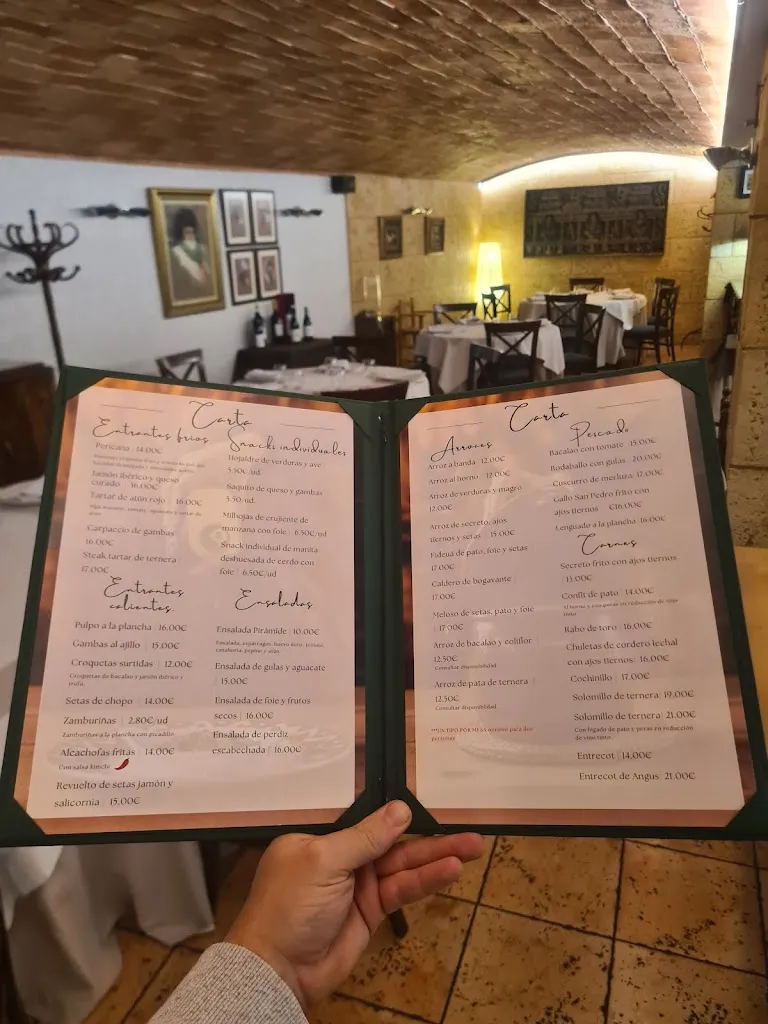 Carta
Entrantes fríos
Pericana 14.00€
Jamón ibérico y queso
curado 16.00€
Tartar de atún rojo 16.00€
Carpaccio de gambas
16.00€
Steak tartar de ternera
17.00€
Entrantes
calientes
Pulpo a la plancha | 16.00€
Gambas al ajillo | 15.00€
Croquetas surtidas | 12.00€
Croquetas de bacalao y jamón ibérico y
trufa.
Setas de chopo | 14.00€
Zamburiñas | 2.80€/ud
Zamburiñas a la plancha con picadillo
Alcachofas fritas 14.00€
Con salsa kimchi
Revuelto de setas jamón y
salicornia | 15.00€
Snacks individuales
Hojaldre de verduras y ave
5.50€/ud.
Saquito de queso y gambas
5.50/ud.
Milhojas de crujiente de
manzana con foie | 6.50€/ud
Snack individual de manita
deshuesada de cerdo con
foie | 6.50€/ud
Ensaladas
Ensalada Pirámide | 10.00€
Ensalada de gulas y aguacate
| 15.00€
Ensalada de foie y frutos
secos | 16.00€
Ensalada de perdiz
escabechada | 16.00€
Carta
Arroces
Arroz a banda | 12.00€
Arroz al horno | 12.00€
Arroz de verduras y magro
12.00€
Arroz de secreto, ajos
tiernos y setas | 15.00€
Fideua de pato, foie y setas
17.00€
Caldero de bogavante
17.00€
Meloso de setas, pato y foie
| 17.00€
Arroz de bacalao y coliflor |
12.50€
Consultar disponibilidad
Arroz de pata de ternera |
12.50€
Consultar disponibilidad
**UN TIPO POR MESA mínimo para dos
personas
Pescado
Bacalao con tomate 15.00€
Rodaballo con gulas | 20.00€
Cuscurro de merluza 17.00€
Gallo San Pedro frito con
ajos tiernos €16.00€
Lenguado a la plancha 16.00€
Carnes
Secreto frito con ajos tiernos
| 13.00€
Confit de pato | 14.00€
Rabo de toro | 16.00€
Chuletas de cordero lechal
con ajos tiernos | 16.00€
Cochinillo | 17.00€
Solomillo de ternera | 19.00€
Solomillo de ternera | 21.00€
Con hígado de pato y peras en reducción
de vino tinto.
Entrecot | 14,00€
Entrecot de Angus | 21.00€